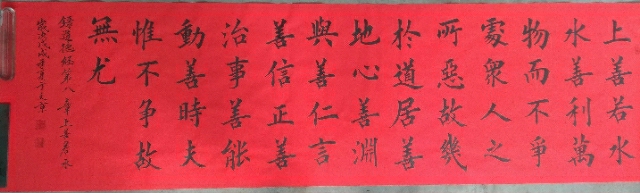 上善若水
水善利萬
物而不爭
處衆人之
所惡故幾
於道居善
地心善淵
與善仁言
善信正善
治事善能
動善時夫
惟不争故
無尤
錄道德經第八章上善若水